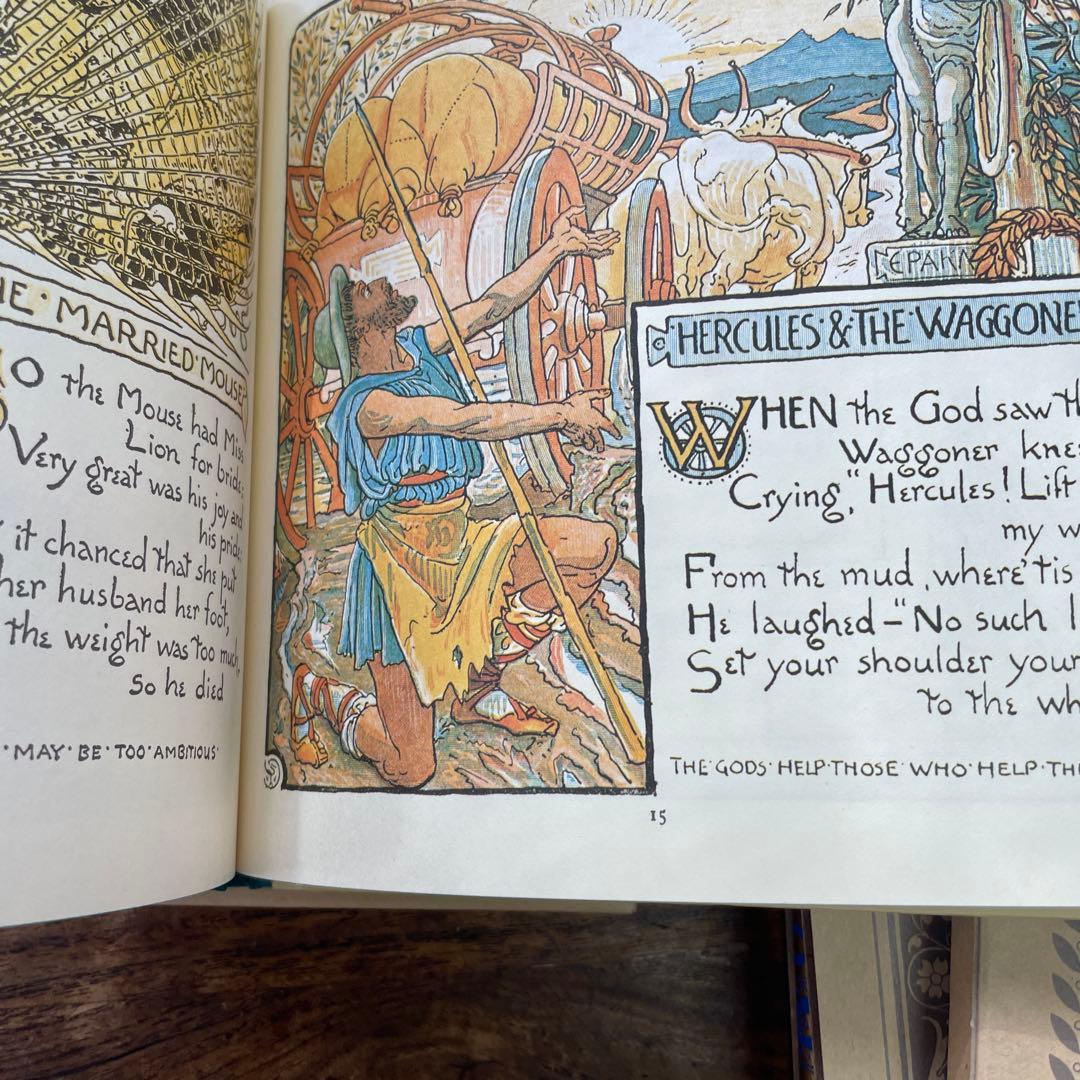 HE · MARRIED · MOUSE
SO the Mouse had Miss
Lion for bride;
Very great was his joy and
his pride:
it chanced that she put
her husband her foot,
the weight was too much,
so he died
· MAY · BE · TOO · AMBITIOUS ·
HERCULES · & · THE · WAGGONE
WHEN the God saw th
Waggoner kne
Crying, "Hercules! Lift
my w
From the mud, where 'tis
He laughed – "No such
Set your shoulder your
to the wh
THE · GODS · HELP · THOSE · WHO · HELP · TH
15